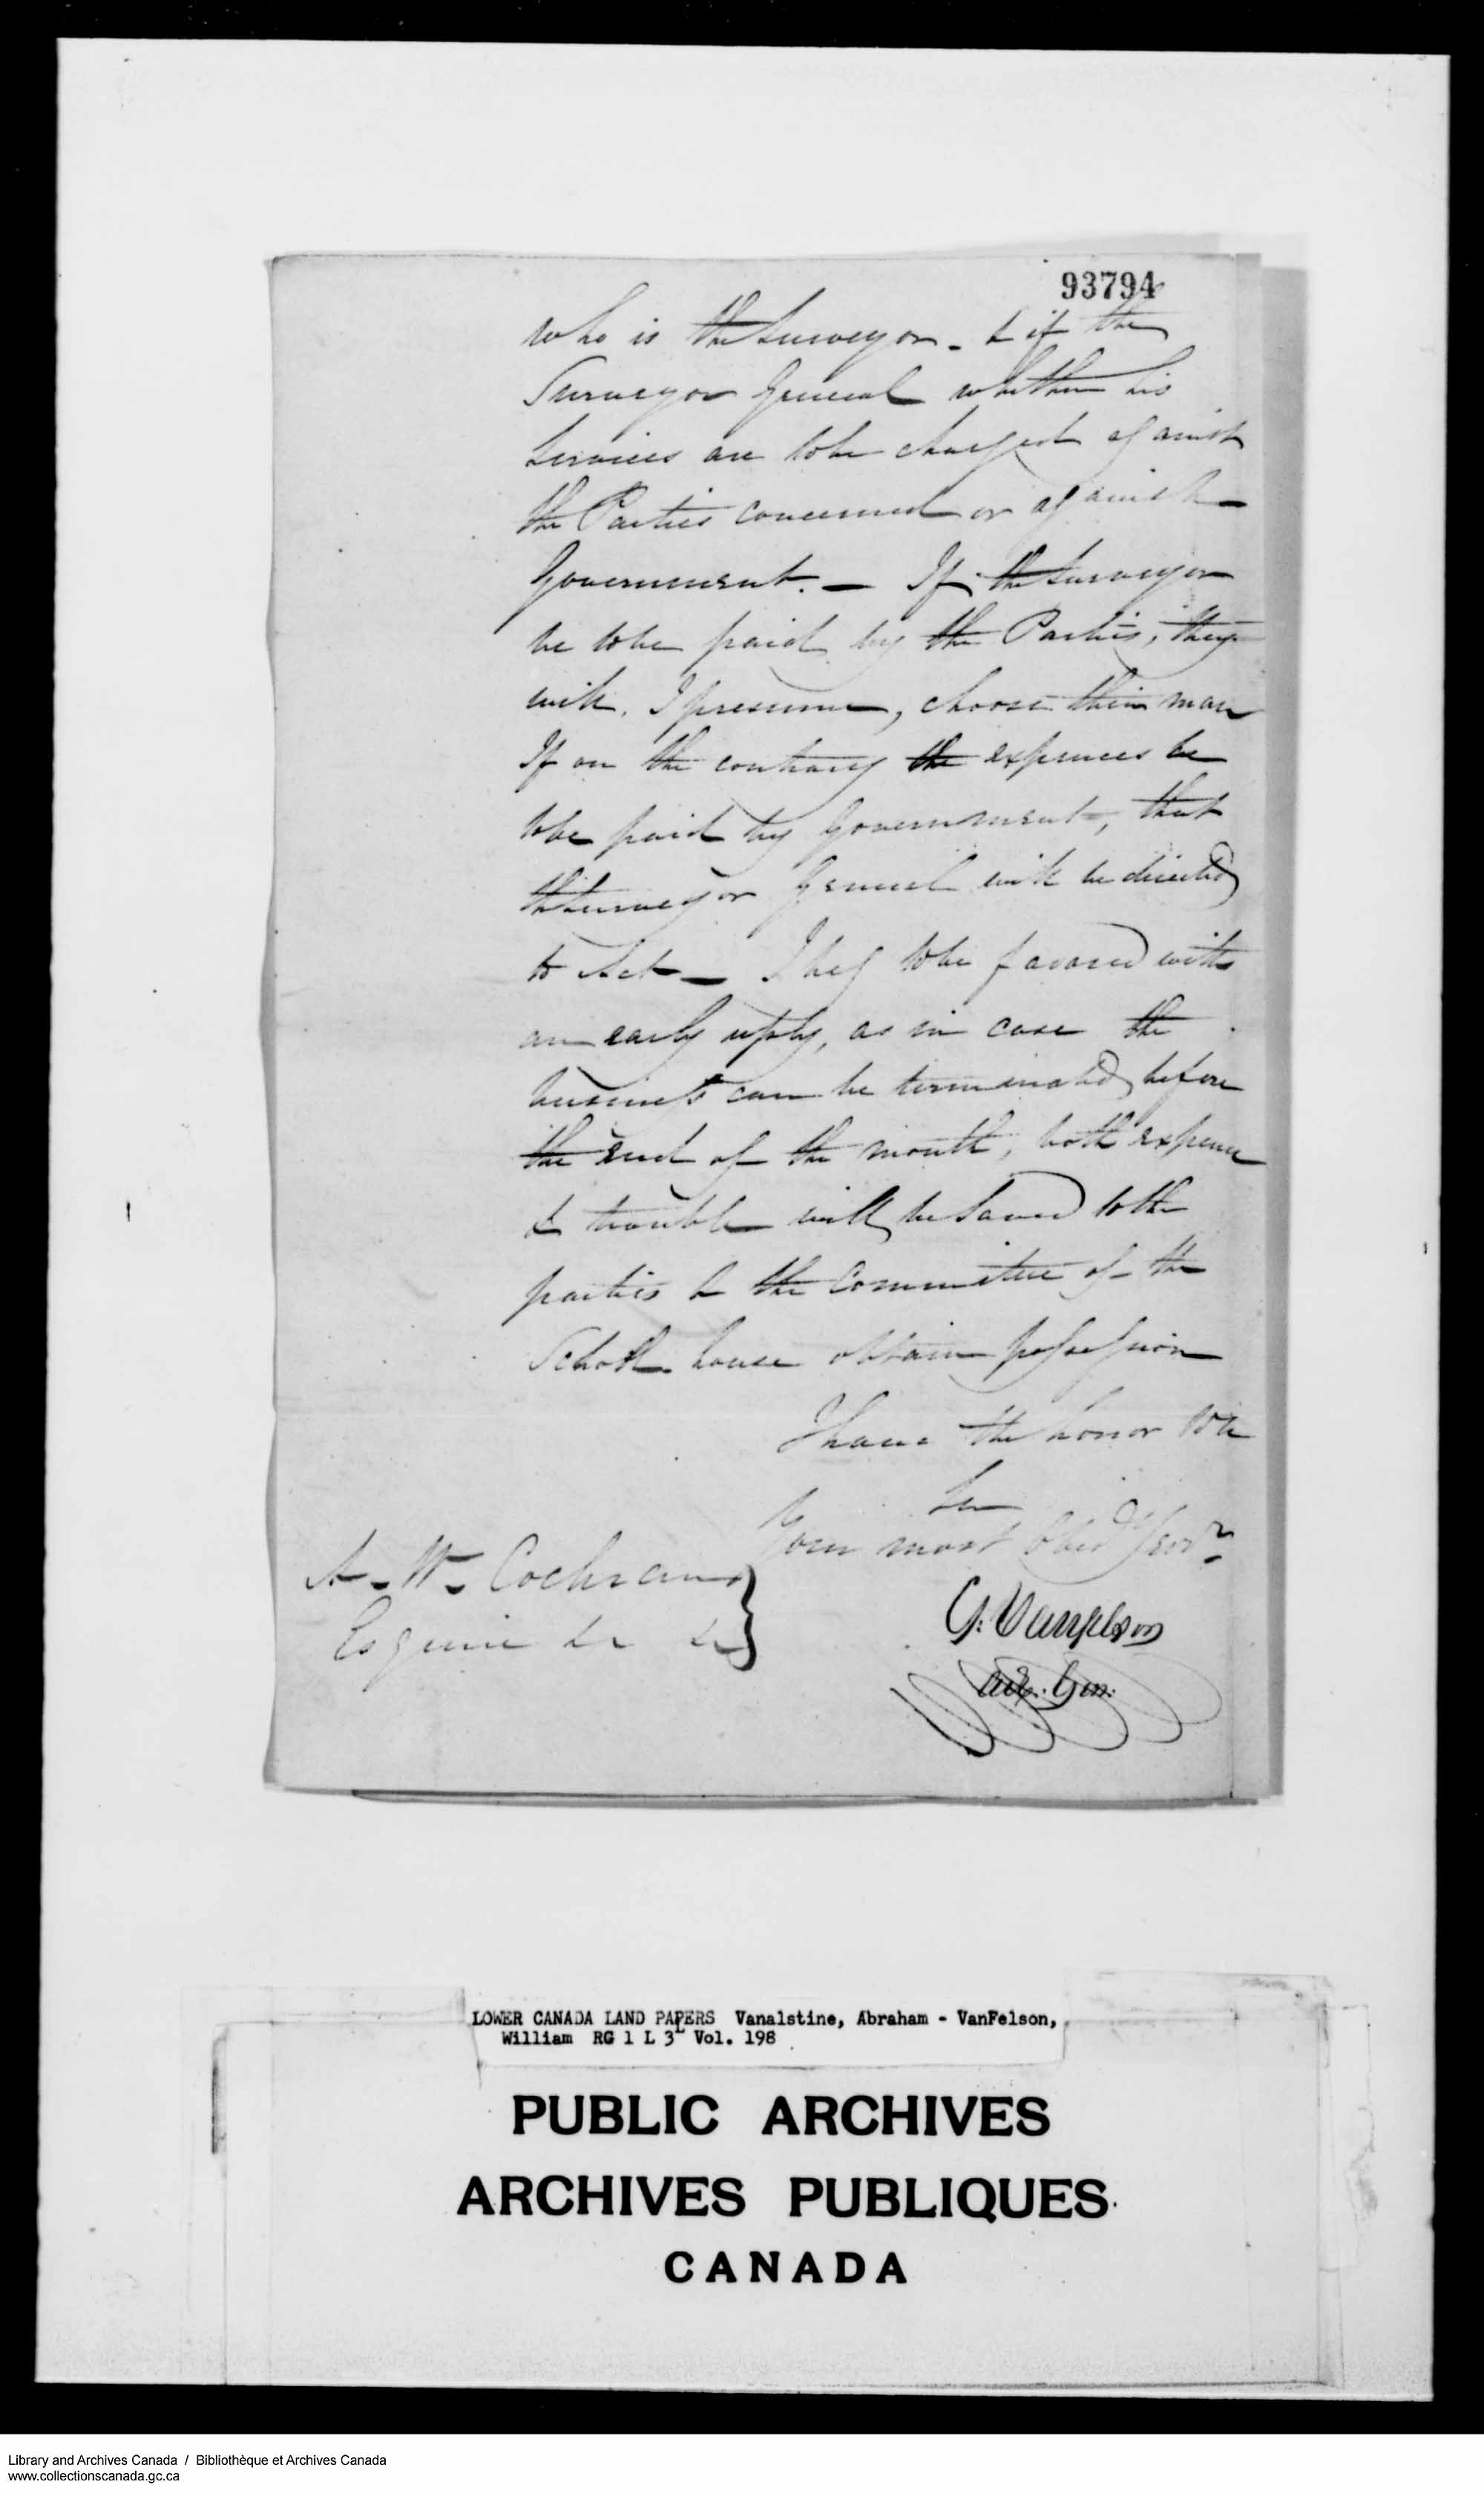 93794
who is the Surveyor - & if the
Surveyor General whether his
Services are to be charged against
the Parties concerned or against
Government. - If the Surveyor
be to be paid by the Parties, they
will, I presume, choose their man
If on the contrary the expences be
to be paid by Government, that
the Surveyor General will be directed
to Act - I beg to be favored with
an early reply, as in case the
business can be terminated before
the end of the month, both expence
& trouble will be saved to the
parties & the Committee of the
School house obtain possession
I have the honor to be
Sir
Your most Obed Serv
A. W. Cochran
Esquire &c &c
G. Vanfelson
Adv. Gen.
LOWER CANADA LAND PAPERS Vanalstine, Abraham - VanFelson,
William RG 1 L 3L Vol. 198
PUBLIC ARCHIVES
ARCHIVES PUBLIQUES
CANADA
Library and Archives Canada / Bibliothèque et Archives Canada
www.collectionscanada.gc.ca